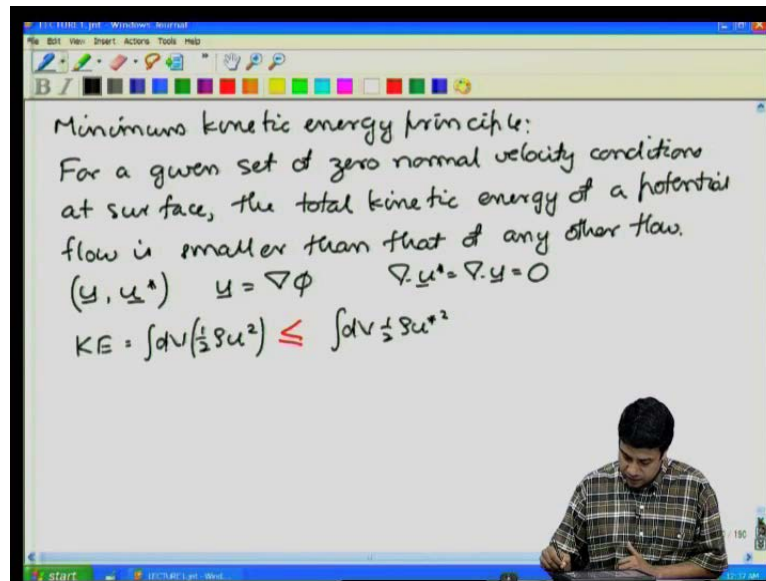 LECTURE1.jnt - Windows Journal
File Edit View Insert Actions Tools Help
B I
Minimum kinetic energy principle:
For a given set of zero normal velocity conditions
at surface, the total kinetic energy of a potential
flow is smaller than that of any other flow.
(u, u*) u = ∇ϕ ∇·u* = ∇·u = 0
KE = ∫dV(½ρu²) ≤ ∫dV ½ρu*²
/ 190
start LECTURE1.jnt - Wind...
12:37 AM